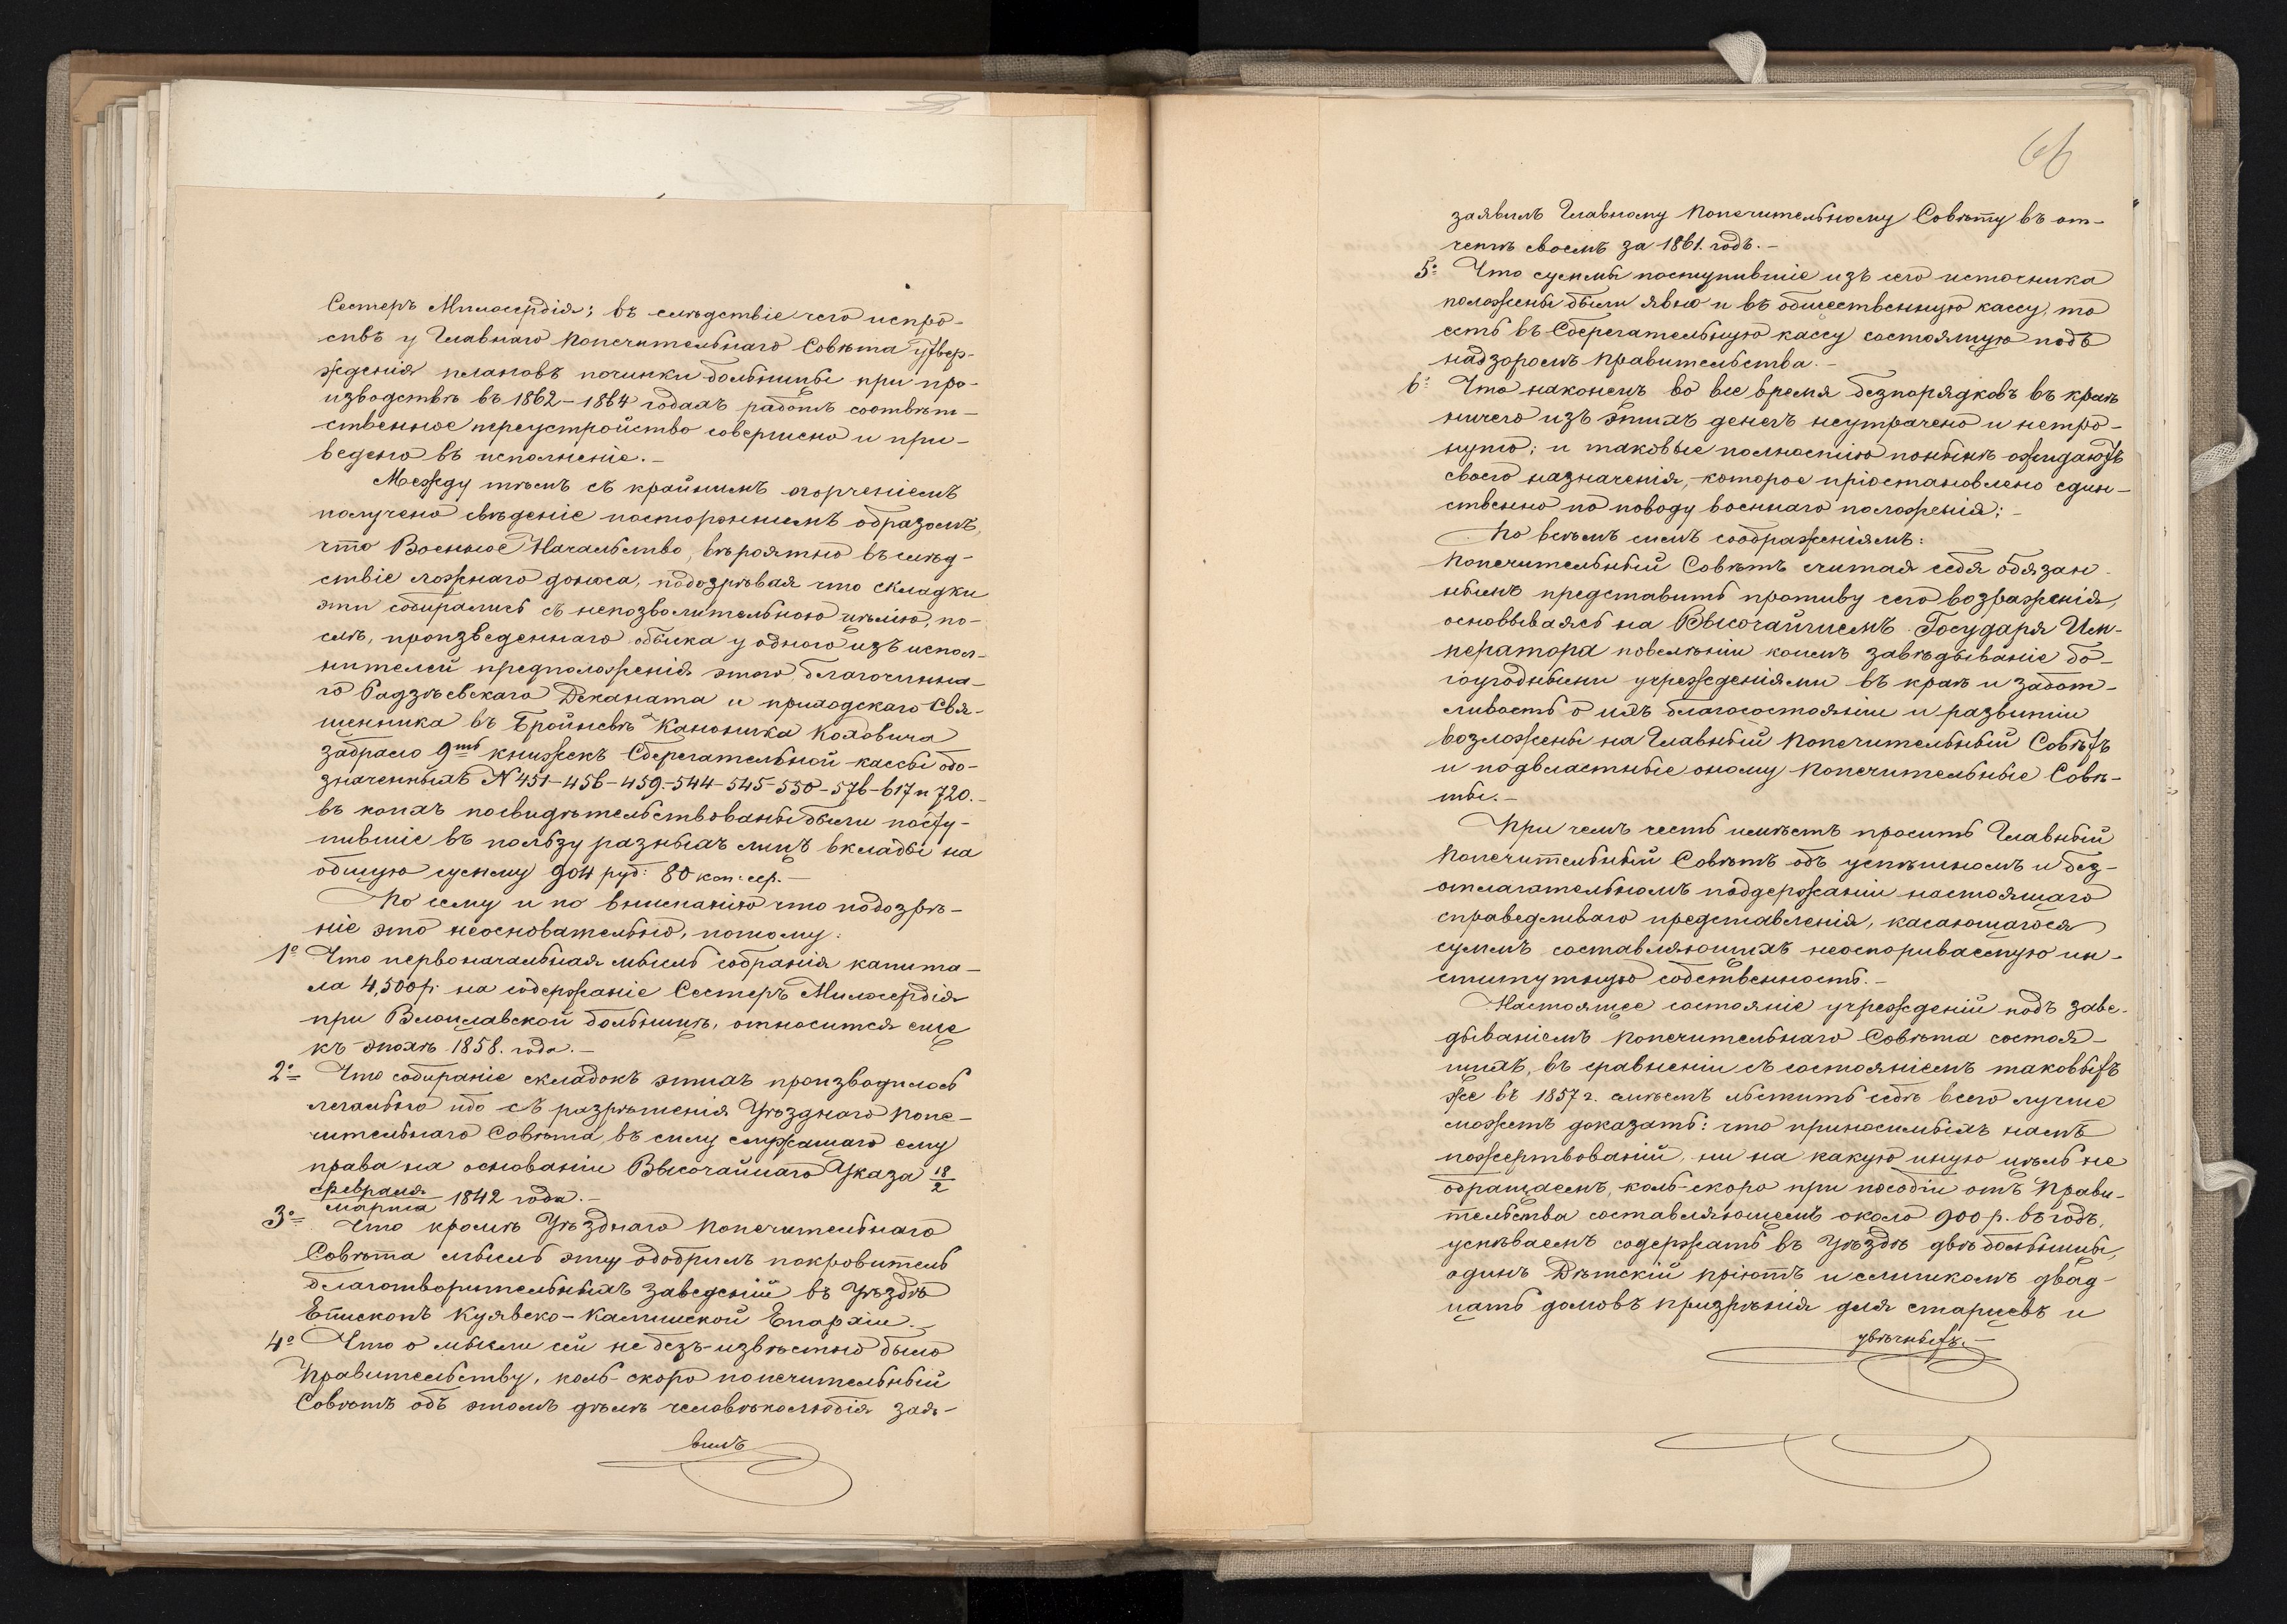 Сестеръ Милосердія; въ слѣдствіе чего испро-
сивъ у Главнаго Попечительнаго Совѣта утвер-
жденія плановъ починки больницы при про-
изводствѣ въ 1862–1864 годахъ работъ соотвѣт-
ственное переустройство совершено и при-
ведено въ исполненіе.–
Между тѣмъ съ крайнимъ огорченіемъ
получено свѣденіе постороннимъ образомъ,
что Военное Начальство, вѣроятно въ слѣд-
ствіе ложнаго доноса, подозрѣвая что складки
эти собирались съ непозволительною цѣлію, по-
слѣ, произведеннаго обыска у одного изъ испол-
нителей предположенія этого, благочинна-
го Радзѣевскаго Деканата и приходскаго Свя-
щенника въ Бройневѣ Каноника
забрало 9ть книжекъ Сберегательной кассы обо-
значенныхъ N 451–456–459–544–545–550–576–617 и 720.–
въ коихъ посвидѣтельствованы были посту-
пившіе въ пользу разныхъ лицъ вклады на
общую сумму 904 руб: 80 коп: сер.–
По сему и по вниманію что подозрѣ-
ніе это неосновательно, потому:
1º Что первоначальная мысль собранія капита-
ла 4,500 р. на содержаніе Сестеръ Милосердія
при Влоцлавской больницѣ, относится еще
къ эпохѣ 1858. года.–
2º Что собираніе складокъ этихъ производилось
легально ибо съ разрѣшенія Уѣзднаго Попе-
чительнаго Совѣта, въ силу служащаго ему
права на основаніи Высочайшаго Указа 18/2
Февраля/Марта 1842 года.–
3º Что кромѣ Уѣзднаго Попечительнаго
Совѣта мысль эту одобрилъ покровитель
благотворительныхъ заведеній въ Уѣздѣ
Епископъ Куявско-Калишской Епархіи.–
4º Что о мысли сей не безъ-извѣстно было
Правительству, коль-скоро попечительный
Совѣтъ объ этомъ дѣлѣ человѣколюбія зая-
вилъ
66
заявилъ Главному Попечительному Совѣту въ от-
четѣ своемъ за 1861. годъ.–
5º Что суммы поступившіе изъ сего источника
положены были явно и въ общественную кассу, то
есть въ Сберегательную кассу состоящую подъ
надзоромъ Правительства.–
6º Что наконецъ во все время безпорядковъ въ краѣ
ничего изъ этихъ денегъ неутрачено и нетро-
нуто; и таковые полностію понынѣ ожидаютъ
своего назначенія, которое пріостановлено един-
ственно по поводу военнаго положенія;–
По всѣмъ симъ соображеніямъ:
Попечительный Совѣтъ считая себя обязан-
нымъ представить противу сего возраженія,
основываясь на Высочайшемъ Государя Им-
ператора повелѣніи коимъ завѣдываніе бо-
гоугодными учрежденіями въ краѣ и забот-
ливость о ихъ благосостояніи и развитіи
возложены на Главный Попечительный Совѣтъ
и подвластные оному Попечительные Совѣ-
ты.–
При чемъ честь имѣетъ просить Главный
Попечительный Совѣтъ объ успѣшномъ и без-
отлагательномъ поддержаніи настоящаго
справедливаго представленія, касающагося
суммъ составляющихъ неоспориваемую ин-
ститутную собственность.–
Настоящее состояніе учрежденій подъ заве-
дываніемъ Попечительнаго Совѣта состоя-
щихъ, въ сравненіи съ состояніемъ таковыхъ
же въ 1857 г. смѣемъ льстить себѣ всего лучше
можетъ доказать: что приносимыхъ намъ
пожертвованій, ни на какую иную цѣль не
обращаемъ, коль-скоро при пособіи отъ Прави-
тельства составляющемъ около 900 р. въ годъ,
успѣваемъ содержать въ Уѣздѣ двѣ больницы,
одинъ Дѣтскій пріютъ и слишкомъ двад-
цать домовъ призрѣнія для старцевъ и
увѣчныхъ.–